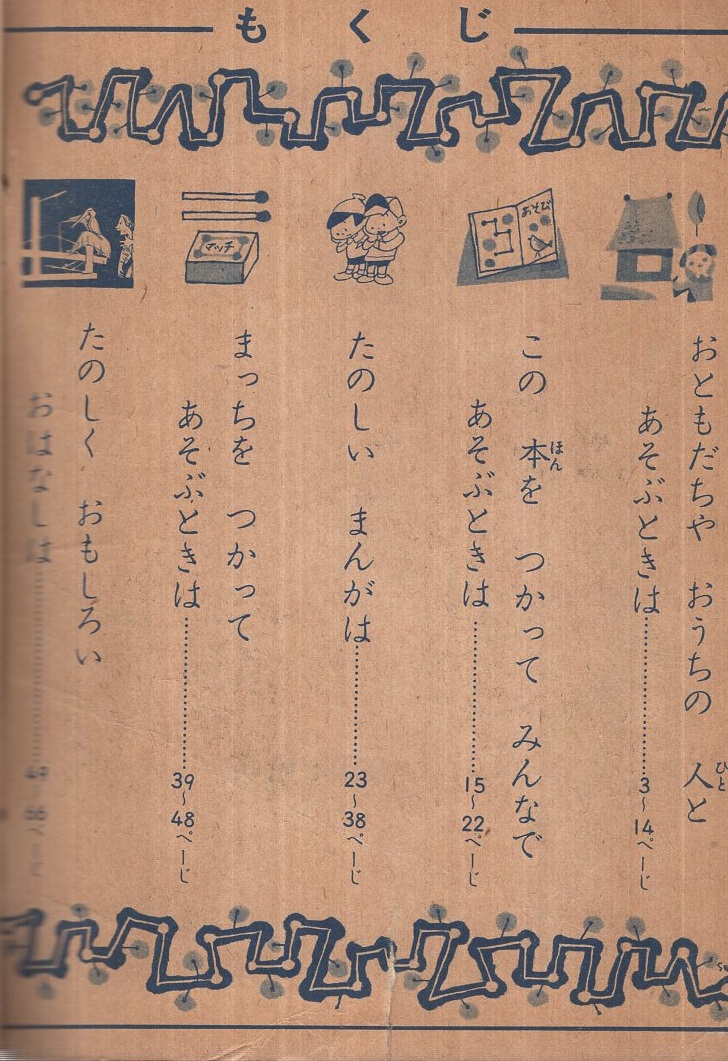 もくじ
おともだちや おうちの 人と
ひと
あそぶときは……………3～14ぺーじ
この 本を つかって みんなで
ほん
あそぶときは……………15～22ぺーじ
たのしい まんがは……………23～38ぺーじ
まっちを つかって
あそぶときは……………39～48ぺーじ
たのしく おもしろい
おはなしは……………49～66ぺーじ
あそび
マッチ